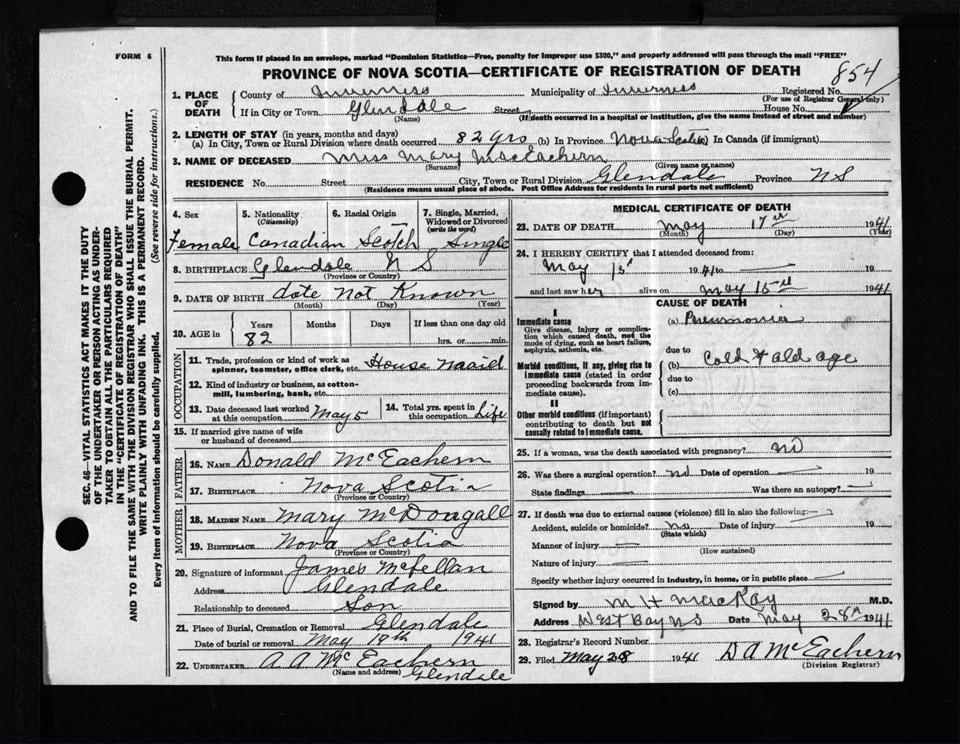 FORM 6
This form if placed in an envelope, marked "Dominion Statistics—Free, penalty for improper use $300," and properly addressed will pass through the mail "FREE"
PROVINCE OF NOVA SCOTIA—CERTIFICATE OF REGISTRATION OF DEATH
854
1. PLACE OF DEATH
County of Inverness Municipality of Inverness Registered No.
(For use of Registrar General only)
If in City or Town Glendale Street House No.
(Name) (If death occurred in a hospital or institution, give the name instead of street and number)
2. LENGTH OF STAY (in years, months and days)
(a) In City, Town or Rural Division where death occurred 82 yrs (b) In Province Nova Scotia In Canada (if immigrant)
3. NAME OF DECEASED Miss Mary MacEachern
(Surname) (Given name or names)
RESIDENCE No. Street City, Town or Rural Division Glendale Province N S
(Residence means usual place of abode. Post Office Address for residents in rural parts not sufficient)
4. Sex 5. Nationality (Citizenship) 6. Racial Origin 7. Single, Married, Widowed or Divorced (write the word)
Female Canadian Scotch Single
8. BIRTHPLACE Glendale N S
(Province or Country)
9. DATE OF BIRTH date not Known
(Month) (Day) (Year)
10. AGE in Years Months Days If less than one day old
82 hrs. or min.
OCCUPATION
11. Trade, profession or kind of work as spinner, teamster, office clerk, etc. House Maid
12. Kind of industry or business, as cotton-mill, lumbering, bank, etc.
13. Date deceased last worked at this occupation May 5
14. Total yrs. spent in this occupation Life
15. If married give name of wife or husband of deceased
FATHER
16. NAME Donald McEachern
17. BIRTHPLACE Nova Scotia
(Province or Country)
MOTHER
18. MAIDEN NAME Mary McDougall
19. BIRTHPLACE Nova Scotia
(Province or Country)
20. Signature of informant James McLellan
Address Glendale
Relationship to deceased Son
21. Place of Burial, Cremation or Removal Glendale
Date of burial or removal May 18th 1941
22. UNDERTAKER A A McEachern
(Name and address) Glendale
MEDICAL CERTIFICATE OF DEATH
23. DATE OF DEATH May 17th 1941
(Month) (Day) (Year)
24. I HEREBY CERTIFY that I attended deceased from:
May 1st 1941 to
and last saw her alive on May 15th 1941
CAUSE OF DEATH
I
Immediate cause
Give disease, injury or complication which caused death, not the mode of dying, such as heart failure, asphyxia, asthenia, etc.
(a) Pneumonia
due to
Morbid conditions, if any, giving rise to immediate cause (stated in order proceeding backwards from immediate cause).
(b) Cold & old age
due to
(c)
II
Other morbid conditions (if important) contributing to death but not causally related to immediate cause.
25. If a woman, was the death associated with pregnancy? no
26. Was there a surgical operation? no Date of operation 19
State findings Was there an autopsy?
27. If death was due to external causes (violence) fill in also the following:
Accident, suicide or homicide? no Date of injury 19
(State which)
Manner of injury
(How sustained)
Nature of injury
Specify whether injury occurred in industry, in home, or in public place
Signed by M H MacKay M.D.
Address West Bay N S Date May 28th 1941
28. Registrar's Record Number
29. Filed May 28 1941 D A McEachern
(Division Registrar)
SEC. 46—VITAL STATISTICS ACT MAKES IT THE DUTY
OF THE UNDERTAKER OR PERSON ACTING AS UNDERTAKER TO OBTAIN ALL THE PARTICULARS REQUIRED
IN THE "CERTIFICATE OF REGISTRATION OF DEATH"
AND TO FILE THE SAME WITH THE DIVISION REGISTRAR WHO SHALL ISSUE THE BURIAL PERMIT.
WRITE PLAINLY WITH UNFADING INK. THIS IS A PERMANENT RECORD.
Every item of information should be carefully supplied. (See reverse side for instructions.)